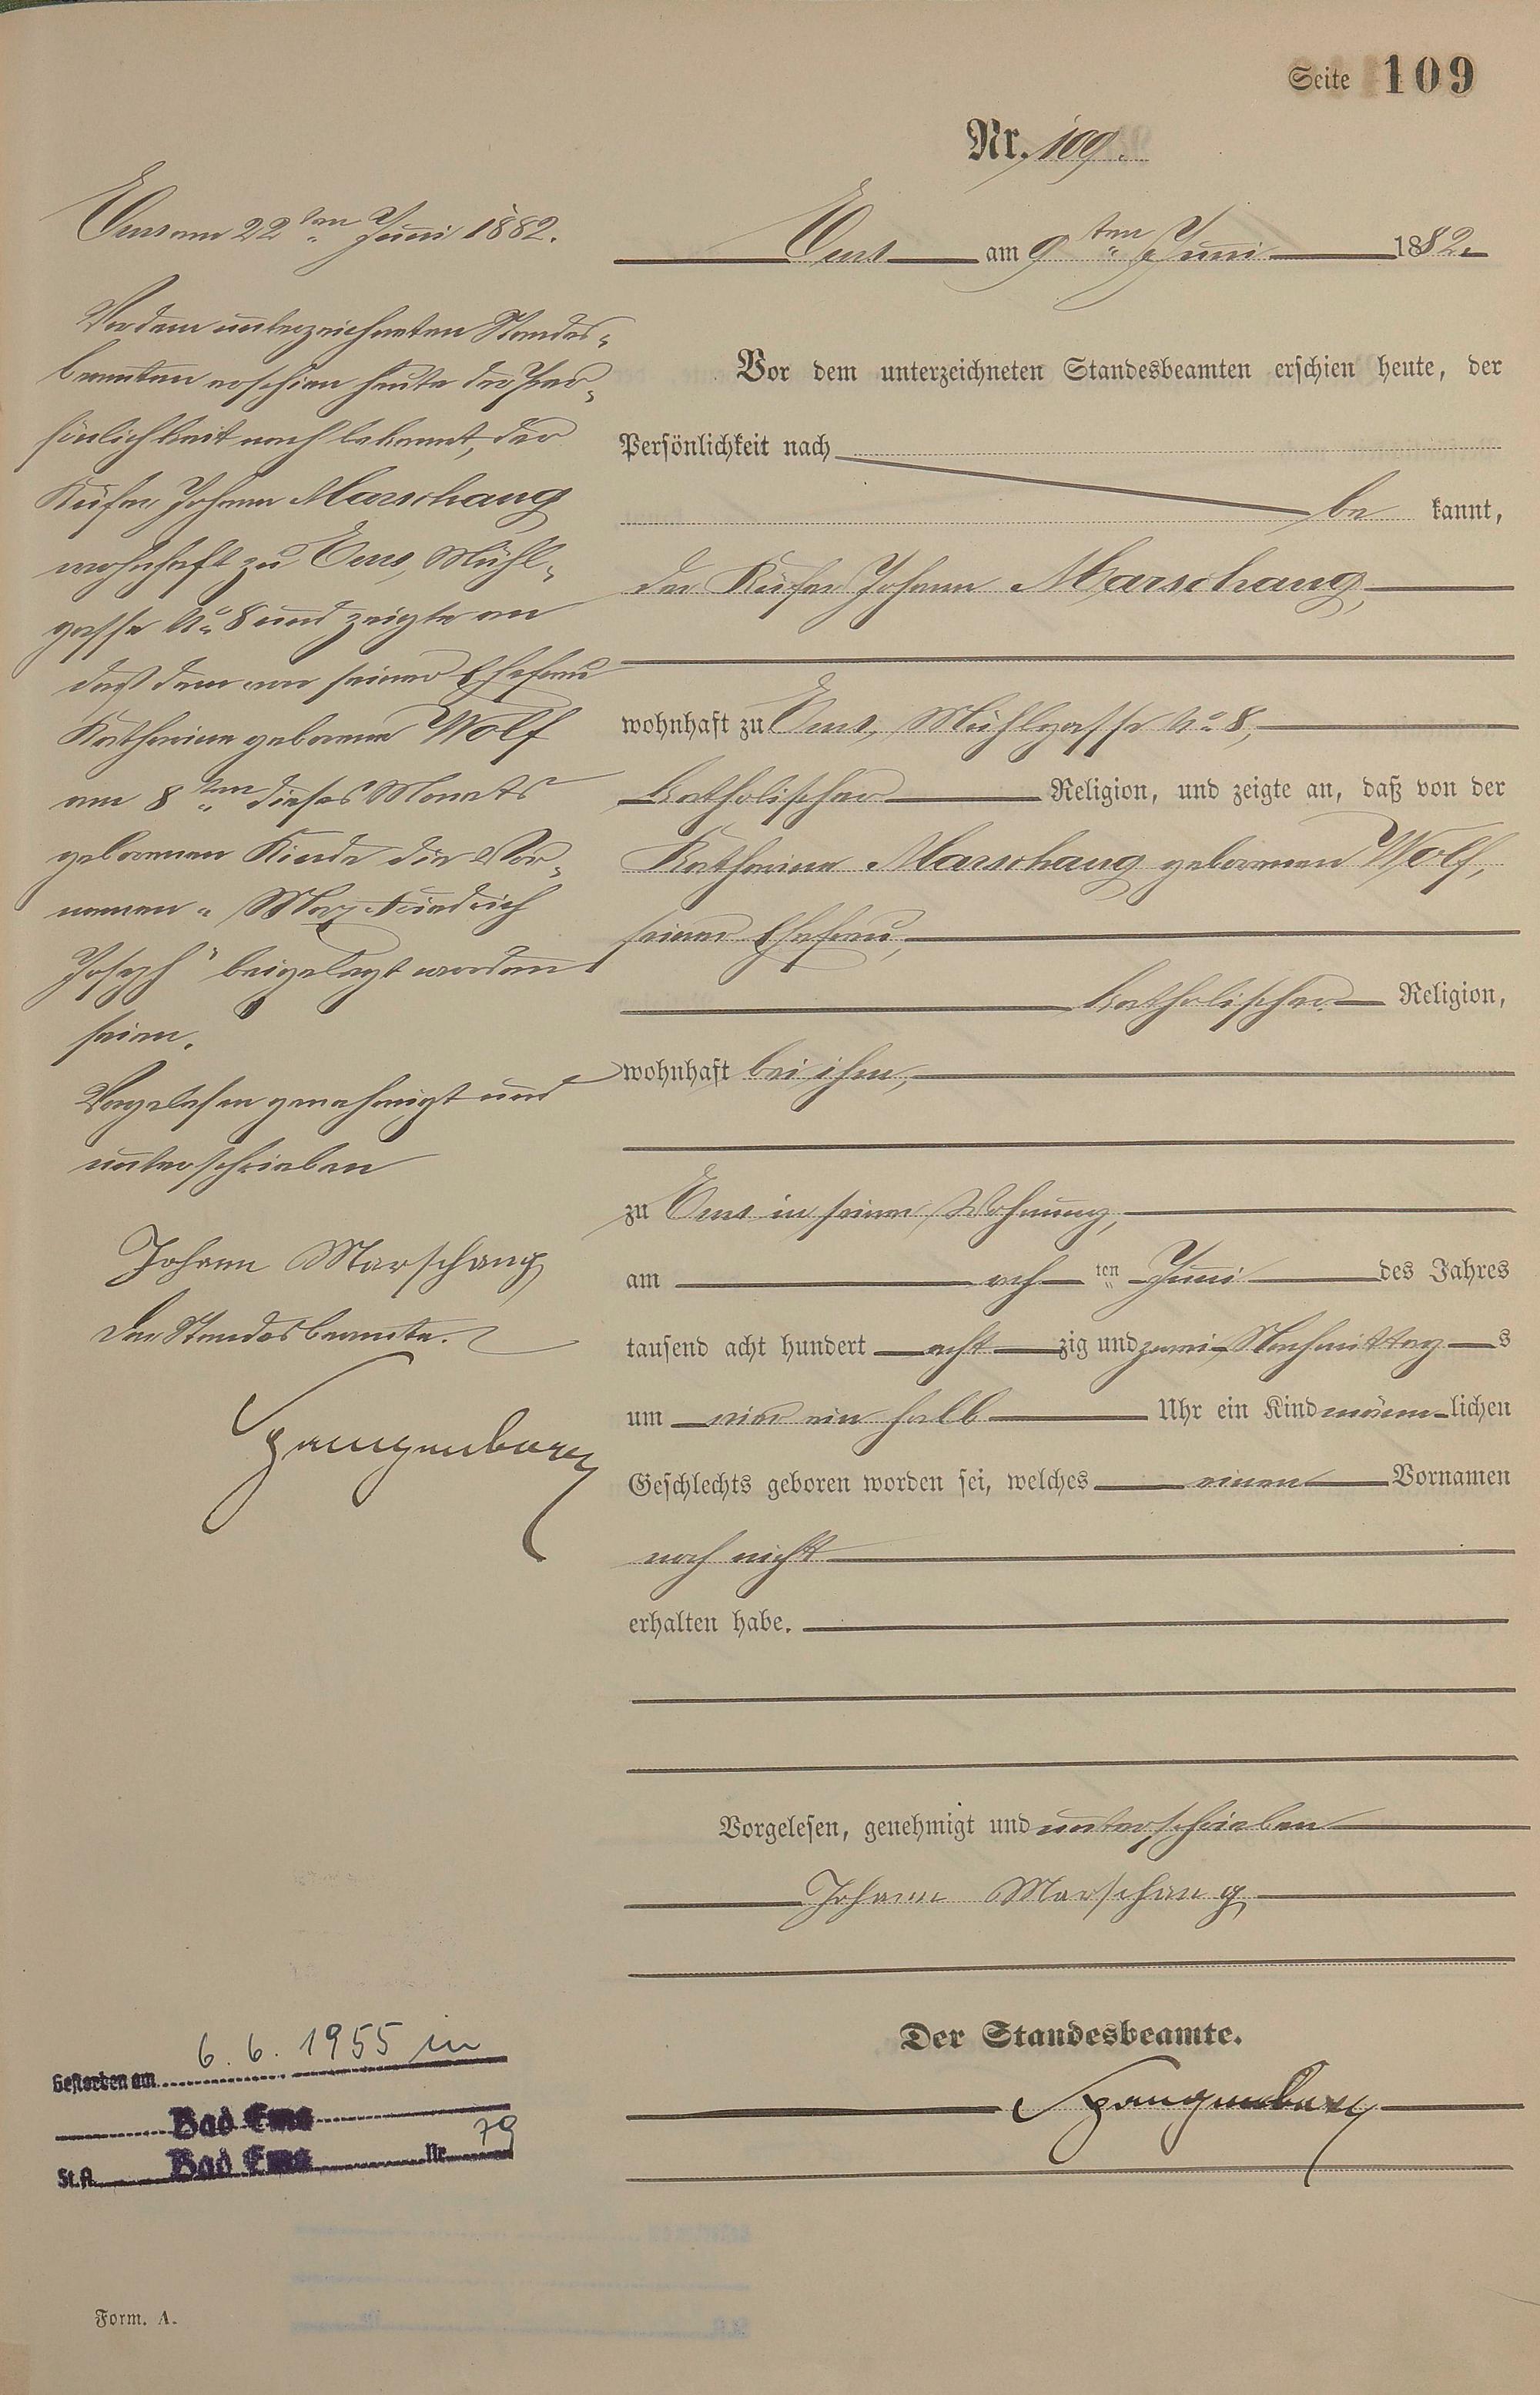 Seite 109
Nr. 109.
Ems am 9ten Juni 1882.
Vor dem unterzeichneten Standesbeamten erschien heute, der
Persönlichkeit nach
be kannt,
der Küfer Johann Marschang,
wohnhaft zu Ems, Mühlgasse No 8,
katholischer Religion, und zeigte an, daß von der
Katharina Marschang geborenen Wolf,
seiner Ehefrau,
katholischer Religion,
wohnhaft bei ihm,
zu Ems in seiner Wohnung,
am ach ten Juni des Jahres
tausend acht hundert acht zig und zwei Nachmittag s
um vier ein halb Uhr ein Kind männ lichen
Geschlechts geboren worden sei, welches einen Vornamen
noch nicht
erhalten habe.
Vorgelesen, genehmigt und unterschrieben
Johann Marschang
Der Standesbeamte.
Spangenberg
Ems am 22ten Juni 1882.
Vor dem unterzeichneten Standes-
beamten erschien heute der Per-
sönlichkeit nach bekannt, der
Küfer Johann Marschang
wohnhaft zu Ems, Mühl-
gasse No 8 und zeigte an
daß dem von seiner Ehefrau
Katharina geborene Wolf
am 8ten dieses Monats
geborenen Kinde die Vor-
namen "Friedrich
Joseph" beigelegt worden
seien.
Vorgelesen genehmigt und
unterschrieben
Johann Marschang
Der Standesbeamte.
Spangenberg
Gestorben am 6.6.1955 in
Bad Ems
St.A. Bad Ems Nr. 79
Form. A.